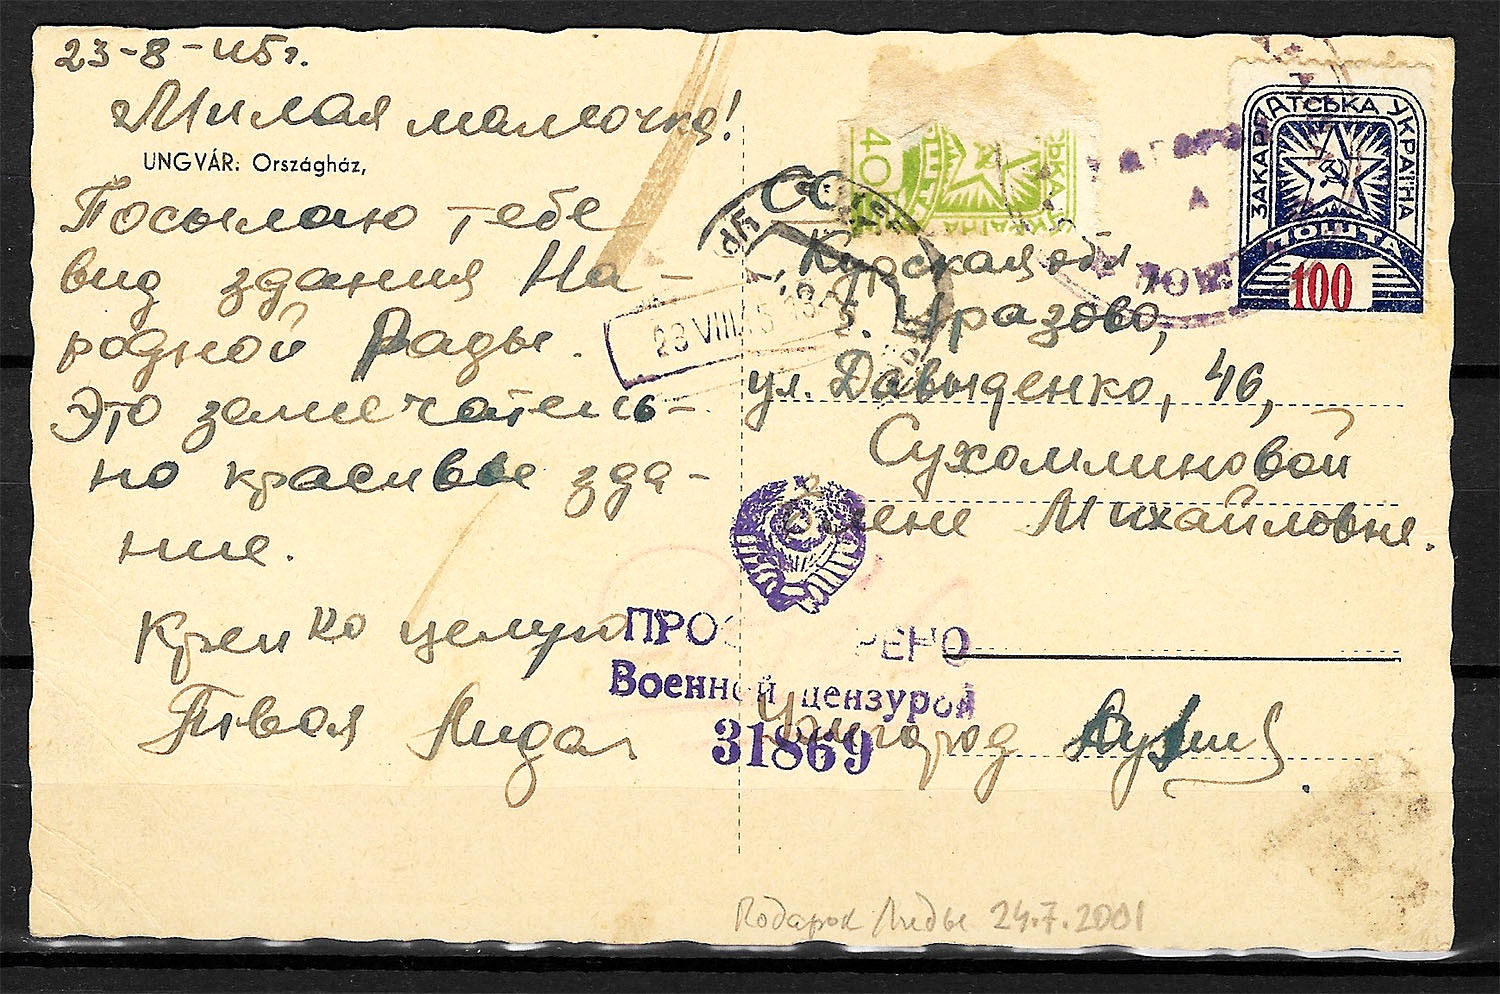 23-8-45г.
Милая мамочка!
UNGVÁR: Országház,
Посылаю тебе
вид здания На-
родной Рады.
Это замечатель-
но красивое зда-
ние.
Крепко целую
Твоя Лида
40
ЬКА УКРАЇНА
ПОШТ
ЗАКАРПАТСЬКА УКРАЇНА
ПОШТА
100
23 VIII 45
СССР
Курская обл
с. Уразово,
ул. Давыденко, 46,
Сухомлиновой
Елене Михайловне.
ПРОСМОТРЕНО
Военной цензурой
31869
Ужгород
Подарок Лиды 24.7.2001